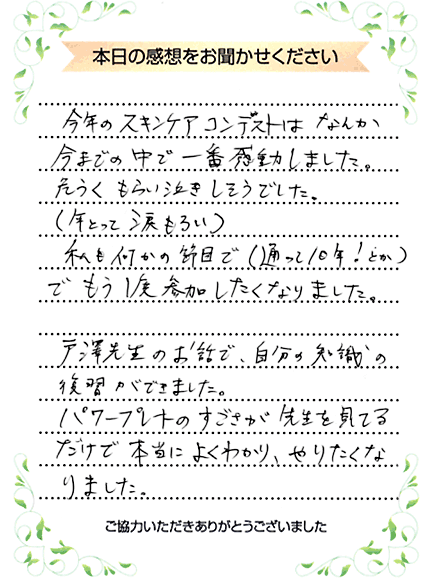 本日の感想をお聞かせください
今年のスキンケアコンテストは なんか
今までの中で一番感動しました。
危うく もらい泣きしそうでした。
(年とって涙もろい)
私も何かの節目で(通って10年!とか)
で もう1度参加したくなりました。
戸澤先生のお話で、自分の知識の
復習ができました。
パワープレートのすごさが先生を見てる
だけで本当によくわかり、やりたくな
りました。
ご協力いただきありがとうございました